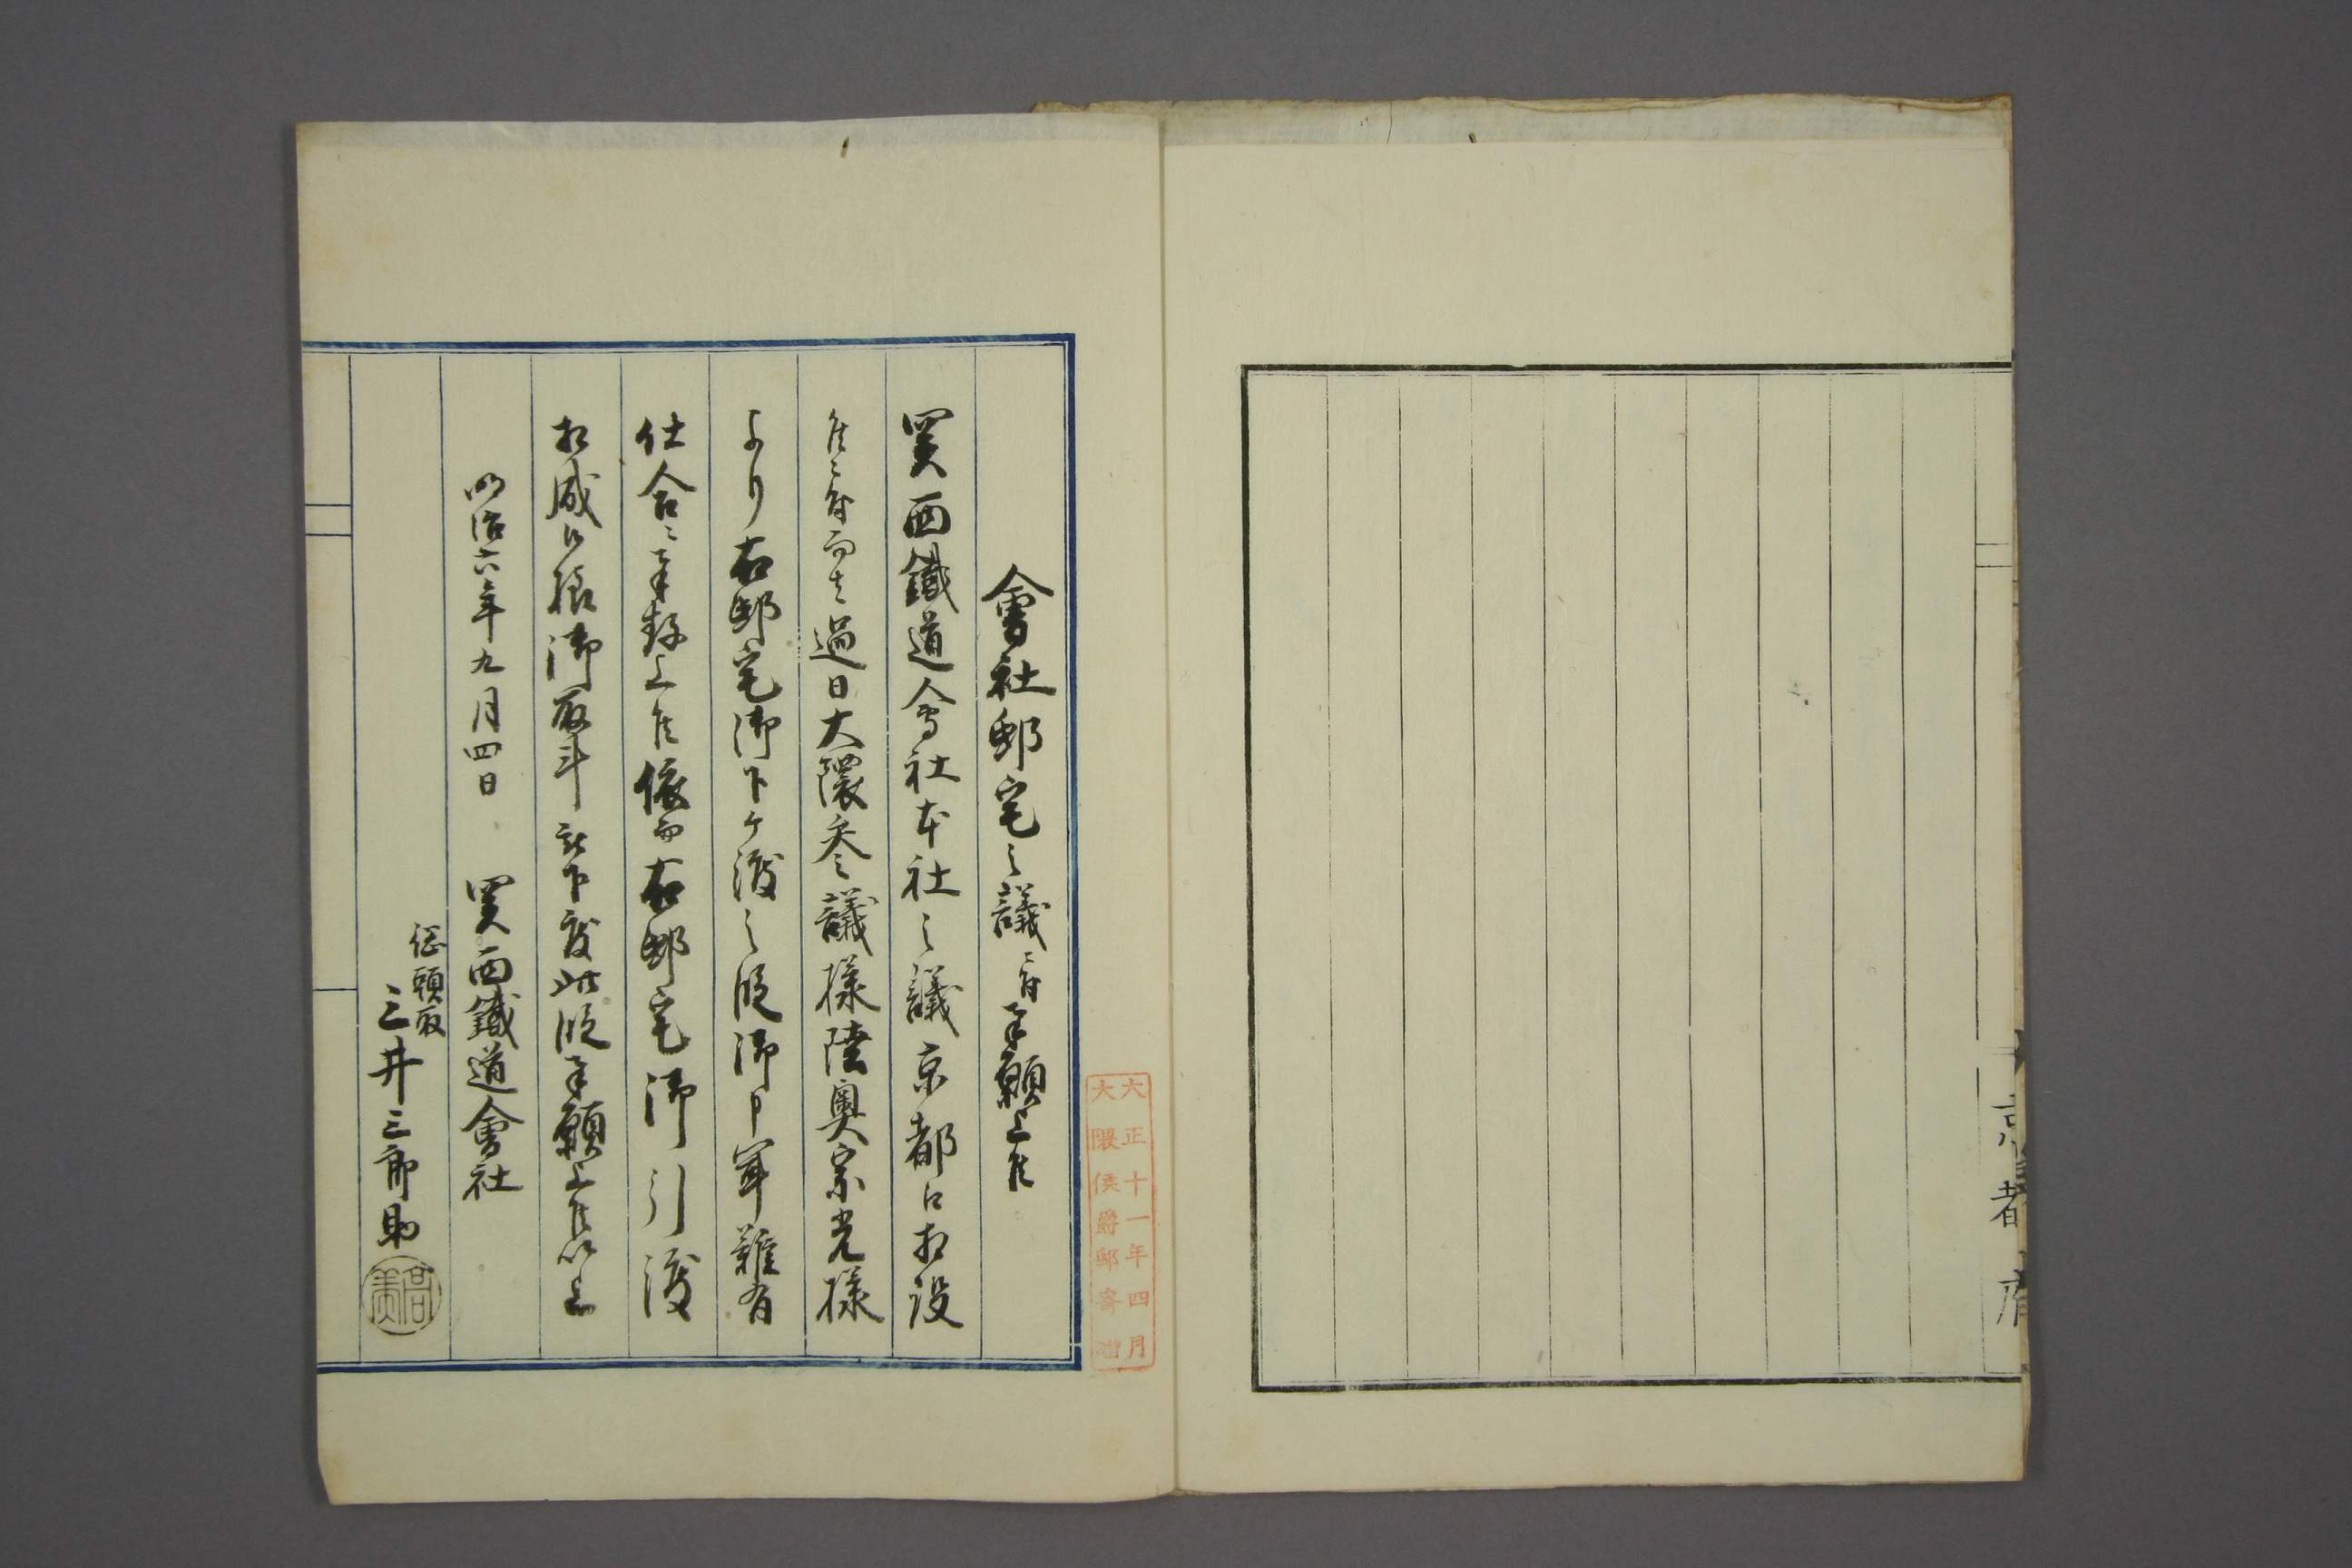 會社邸宅之議ニ付奉願上候
関西鐵道會社本社之議京都江相設
候ニ付而者過日大隈参議様陸奥宗光様
より右邸宅御下ケ渡之段御申聞難有
仕合ニ奉存上候依而右邸宅御引渡
相成候様御取斗被下度此段奉願上候以上
明治六年九月四日 関西鐵道會社
総頭取
三井三郎助
高美
大正十一年四月
大隈侯爵邸寄贈